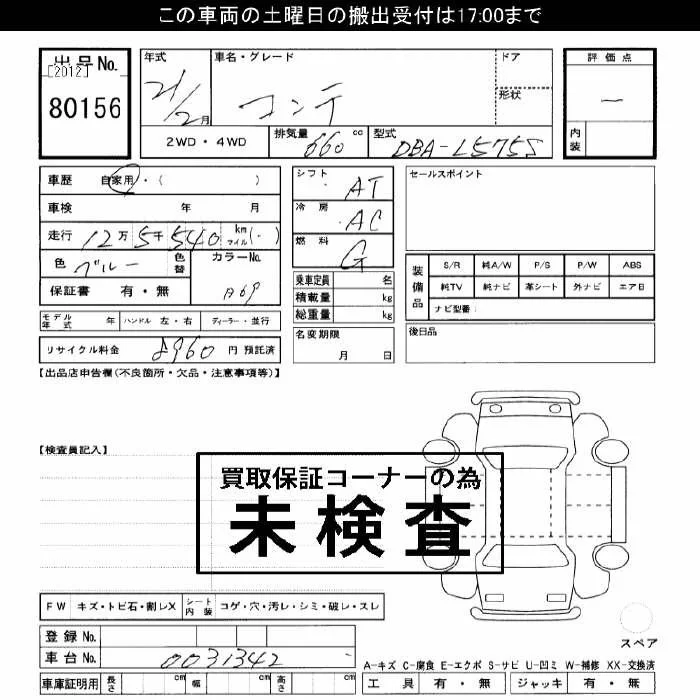 この車両の土曜日の搬出受付は17:00まで
出品No.
[2012]
80156
年式
21/2月
車名・グレード
コンテ
ドア
形状
評価点
―
内装
2WD・4WD
排気量 660 cc
型式 DBA-L575S
車歴 自家用・( )
車検 年 月
走行 12万5千540 km マイル (・)
色 ブルー 色替
カラーNo. B69
保証書 有・無
シフト AT
冷房 AC
燃料 G
乗車定員 名
積載量 kg
総重量 kg
セールスポイント
装備品
S/R 純A/W P/S P/W ABS
純TV 純ナビ 革シート 外ナビ エアB
ナビ型番:
モデル年式 年 ハンドル 左・右 ディーラー・並行
名変期限 月 日
後日品
リサイクル料金 8960 円 預託済
【出品店申告欄(不良箇所・欠品・注意事項等)】
【検査員記入】
買取保証コーナーの為
未検査
FW キズ・トビ石・割レX シート内装 コゲ・穴・汚レ・シミ・破レ・スレ
登録No.
車台No. 0031342
スペア
A-キズ C-腐食 E-エクボ S-サビ U-凹ミ W-補修 XX-交換済
車庫証明用 長さ cm 幅 cm 高さ cm
工具 有・無 ジャッキ 有・無